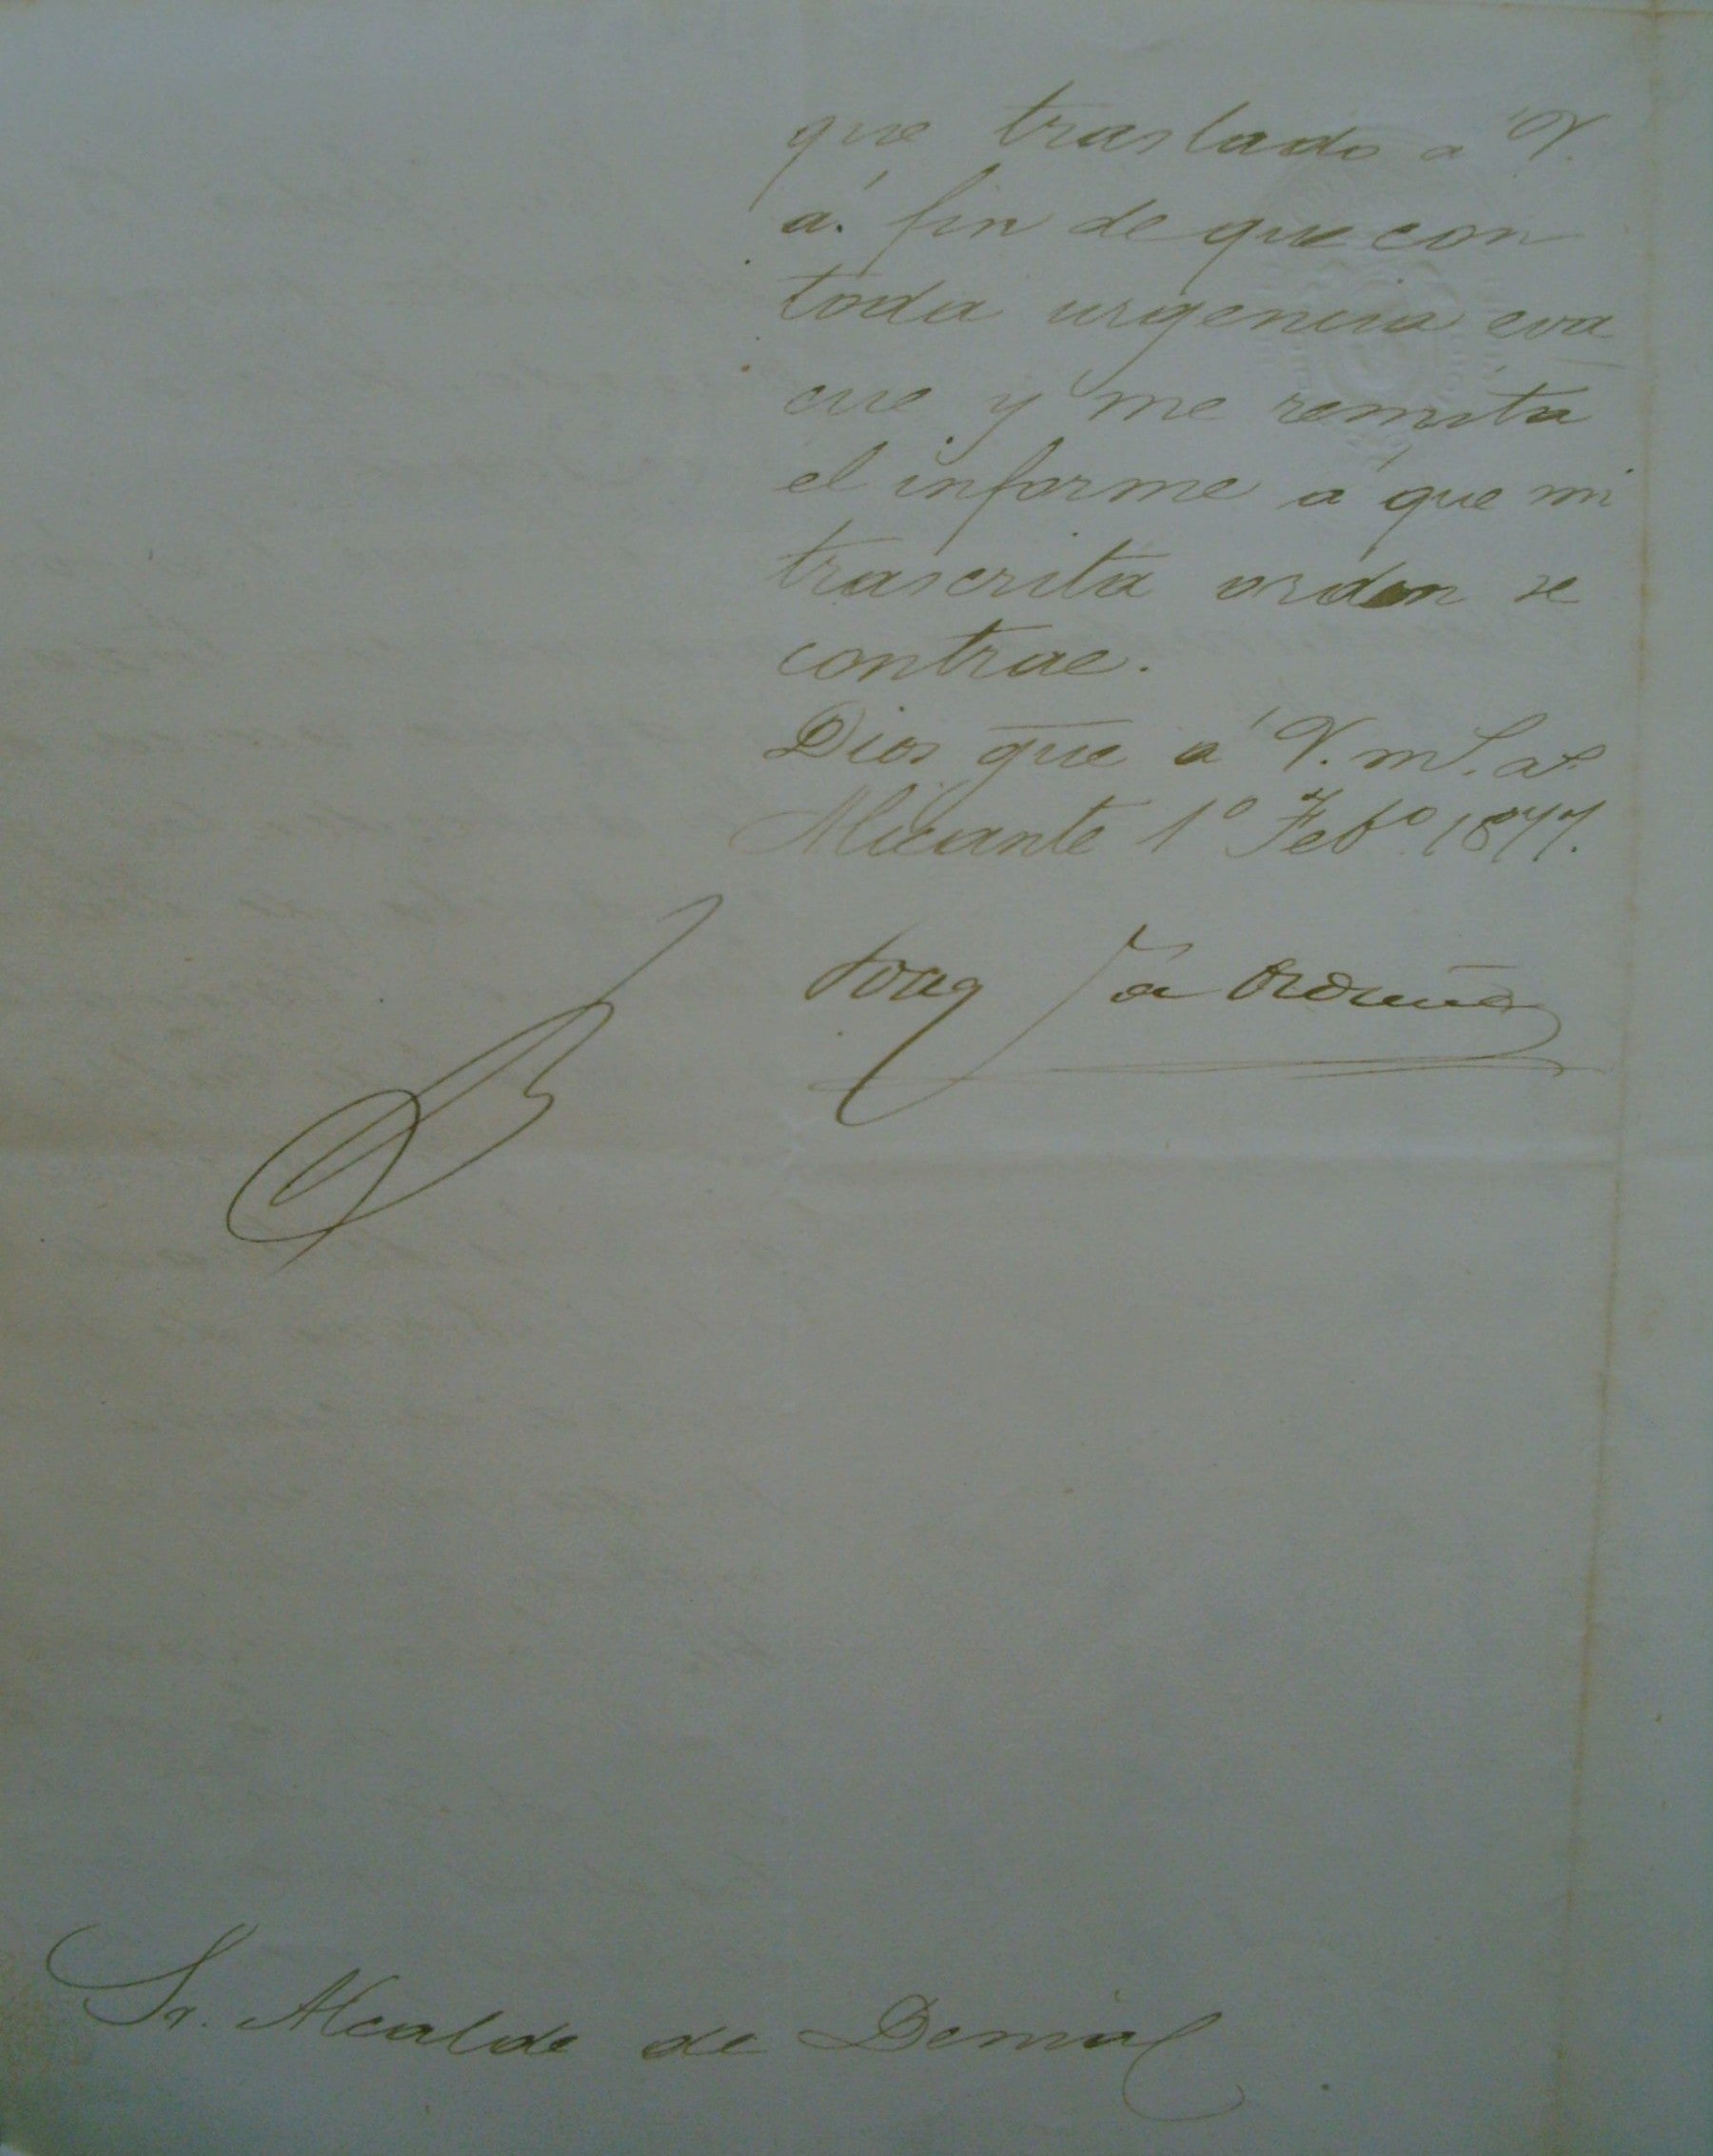 que traslado a V.
á fin de que con
toda urgencia eva
cue y me remita
el informe á que mi
trascrita orden se
contrae.
Dios gue á V. m.s. a.s.
Alicante 1º Febº 1877.
Joaq Ga Orduña
Sr. Alcalde de Denia